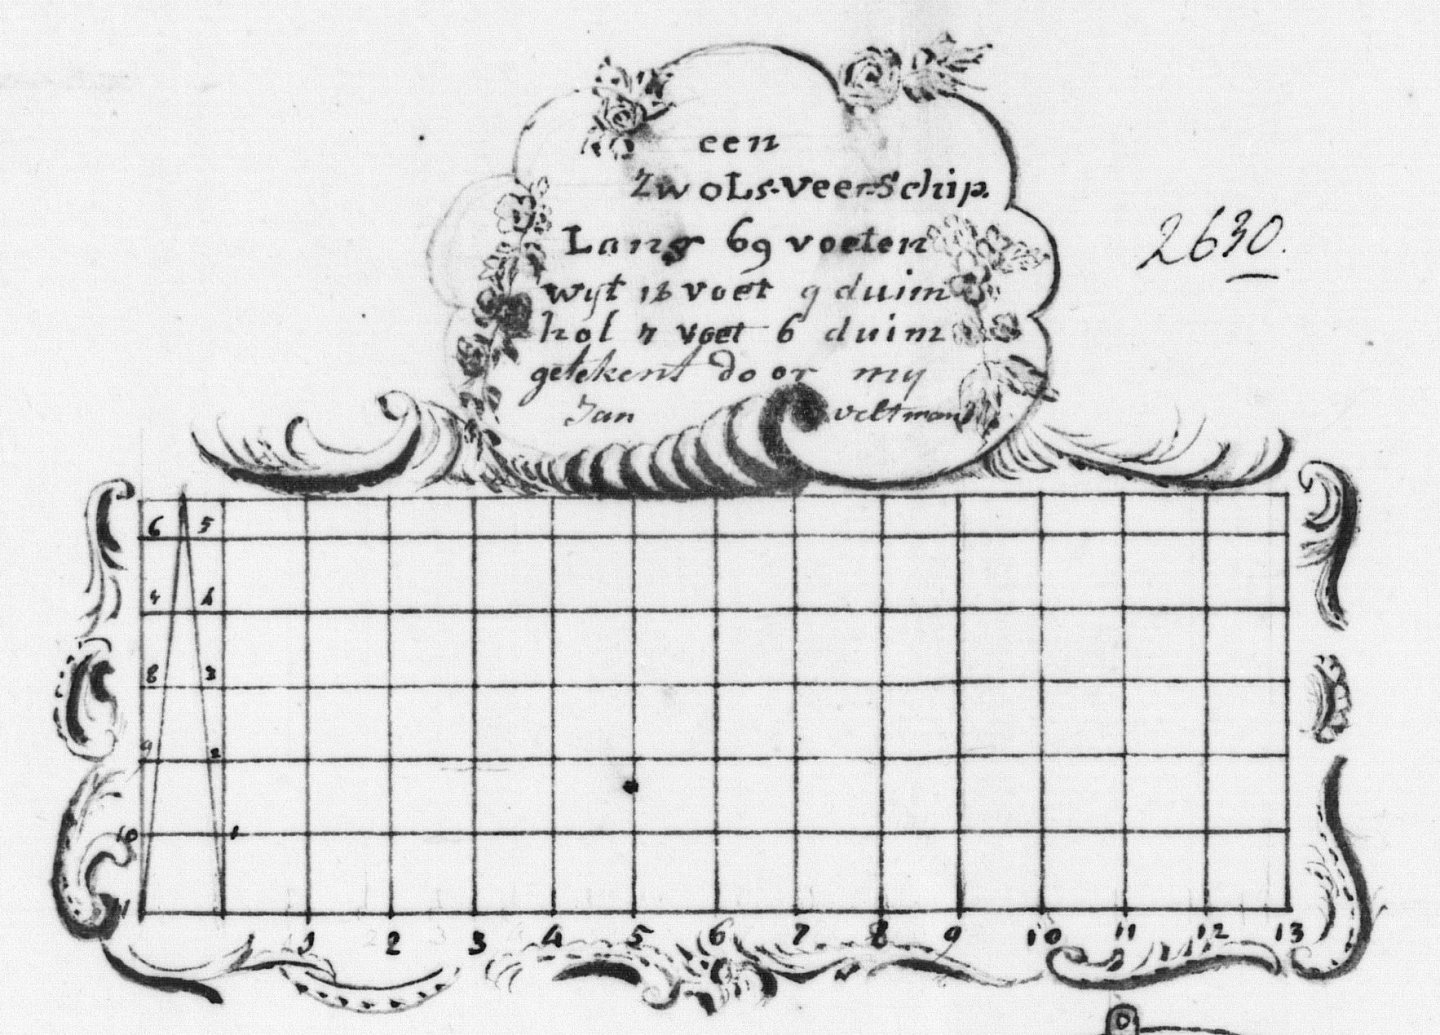 een
Zwols-veer-Schip.
Lang 69 voeten
wyt 18 voet 9 duim
hol 7 voet 6 duim
getekent door my
Jan veltman
2630.
6 5
7 4
8 3
9 2
10 1
11
1 2 3 4 5 6 7 8 9 10 11 12 13